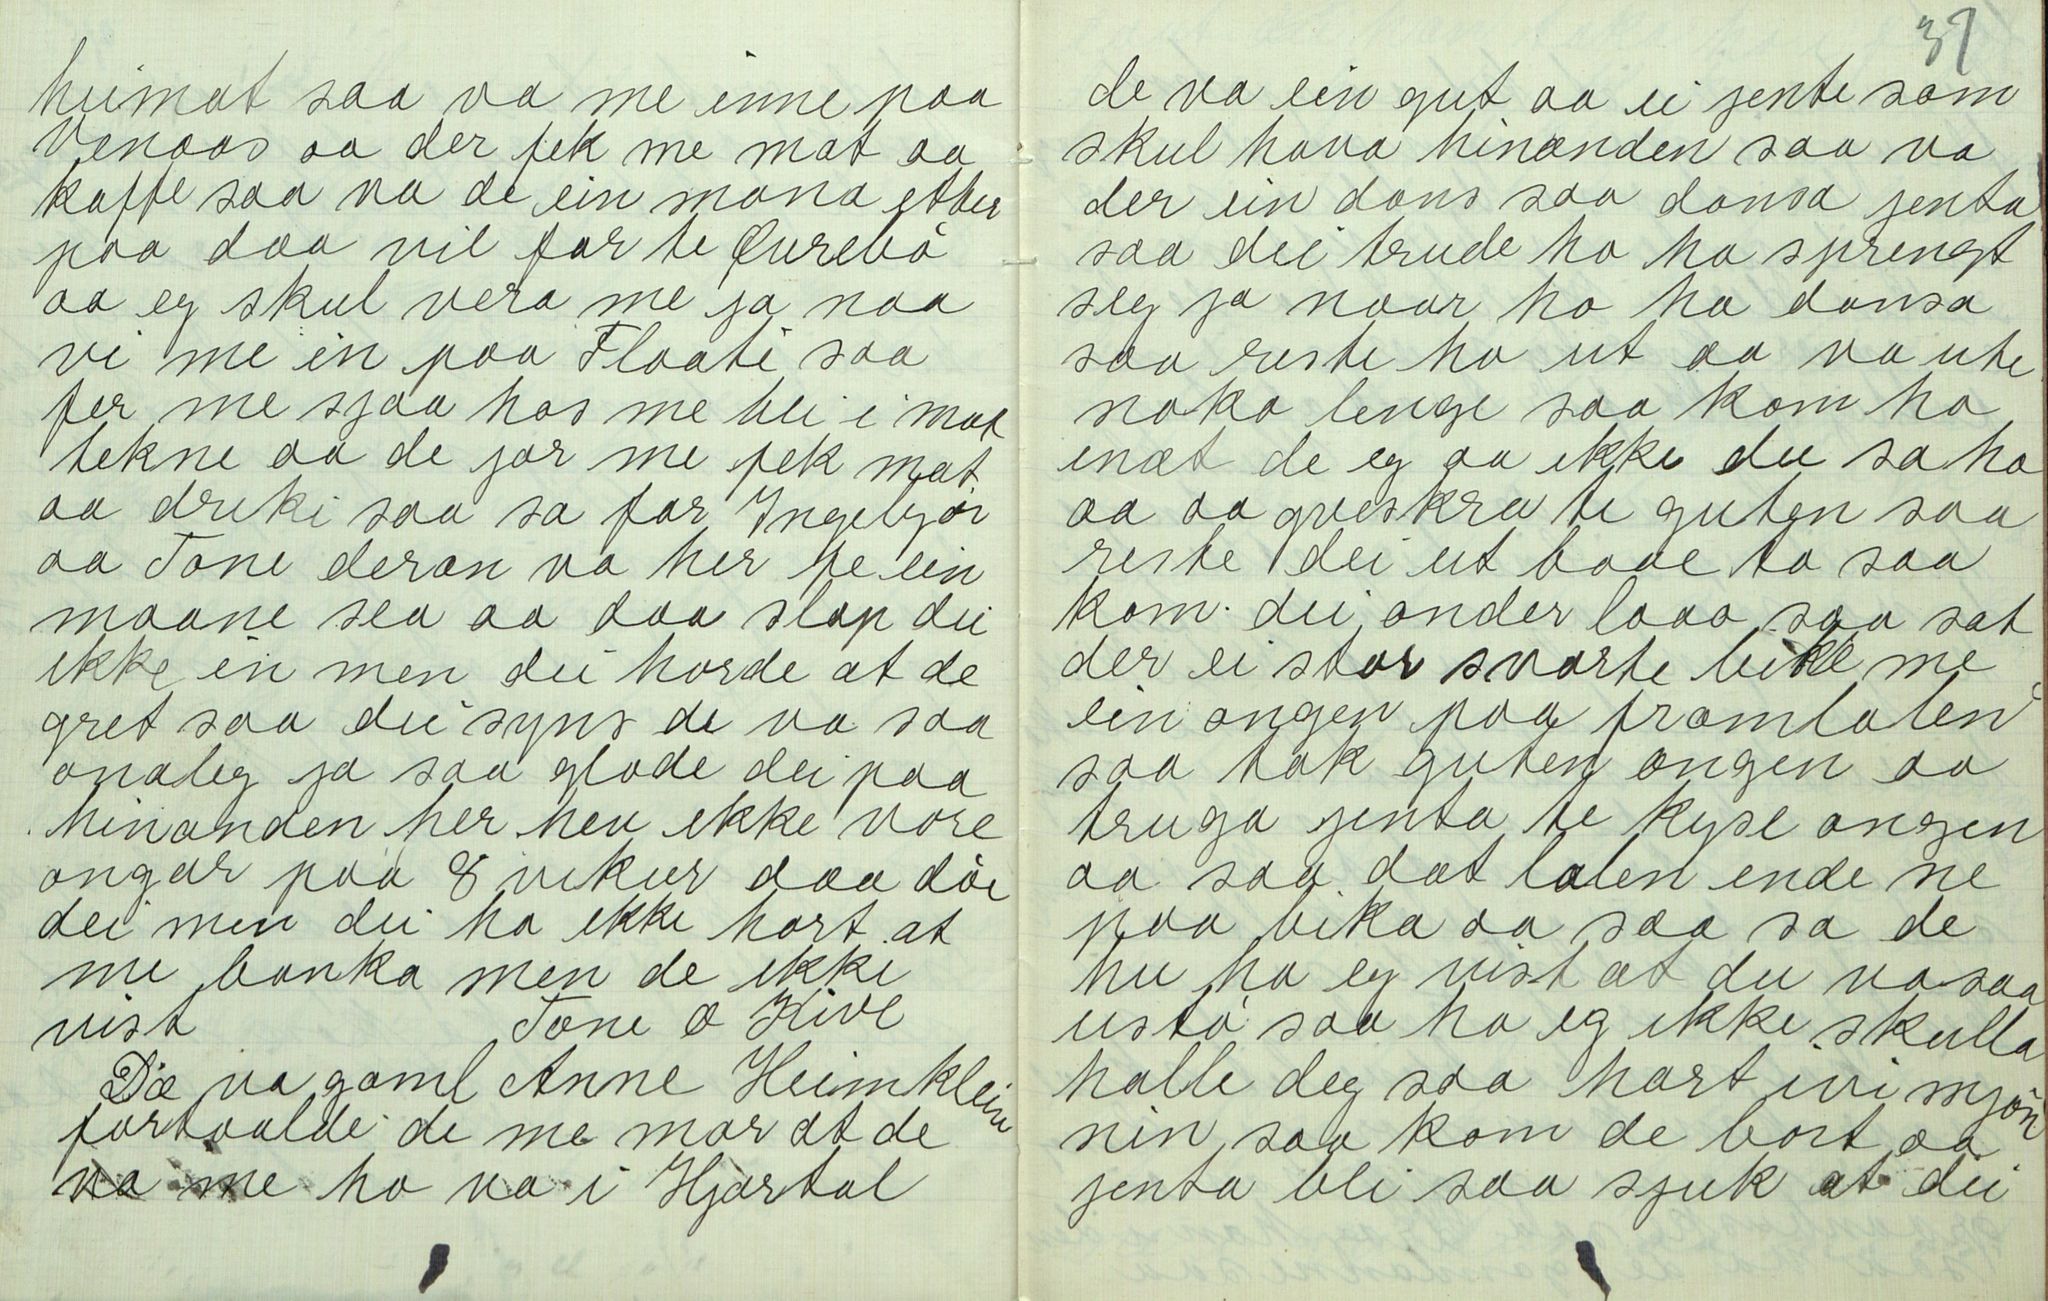 heimat saa va me inne paa
Venaas aa der fek me mat aa
kaffe saa va de ein mana etter
paa daa vil far te Qurebö
aa eg skul vera me ja naa
vi me in paa Flaati saa
fer me sjaa has me bli i mot
tekne aa de jor me fek mat
aa drikk saa sa far Ingebjör
aa Tone deran va her fe ein
maane sea aa daa slap dei
ikke in men dei horde at de
gret saa dei syns de va saa
onaleg ja saa glode dei paa
hinanden her hev ikke vore
ongar paa 8 vikur daa döe
dei men dei ha ikke hort at
me banka men de ikke
vist Tone o Kive
Dæ va gaml Anne Heimklein
fortaalde de me mor at de
va me ho va i Hjartal
37
de va ein gut aa ei jente som
skul hava hinanden saa va
der ein dans saa dansa jenta
saa dei trude ho ha sprengt
seg ja naar ho ha dansa
saa reste ho ut aa va ute
noko lenge saa kom ho
inat de eg aa ikke du sa ho
aa aa gveskra te guten saa
reste dei ut baae to saa
kom dei onder laaa saa sat
der ei stor svarte bikk me
ein ongen paa framlaten
saa tok guten ongen aa
truga jenta te kyse ongen
aa saa dat laten ende ne
paa bika aa saa sa de
hu ha eg vist at du va saa
ustö saa ha eg ikke skulla
halle deg saa hart ivi mjön
nin saa kom de bort aa
jenta bli saa sjuk at dei